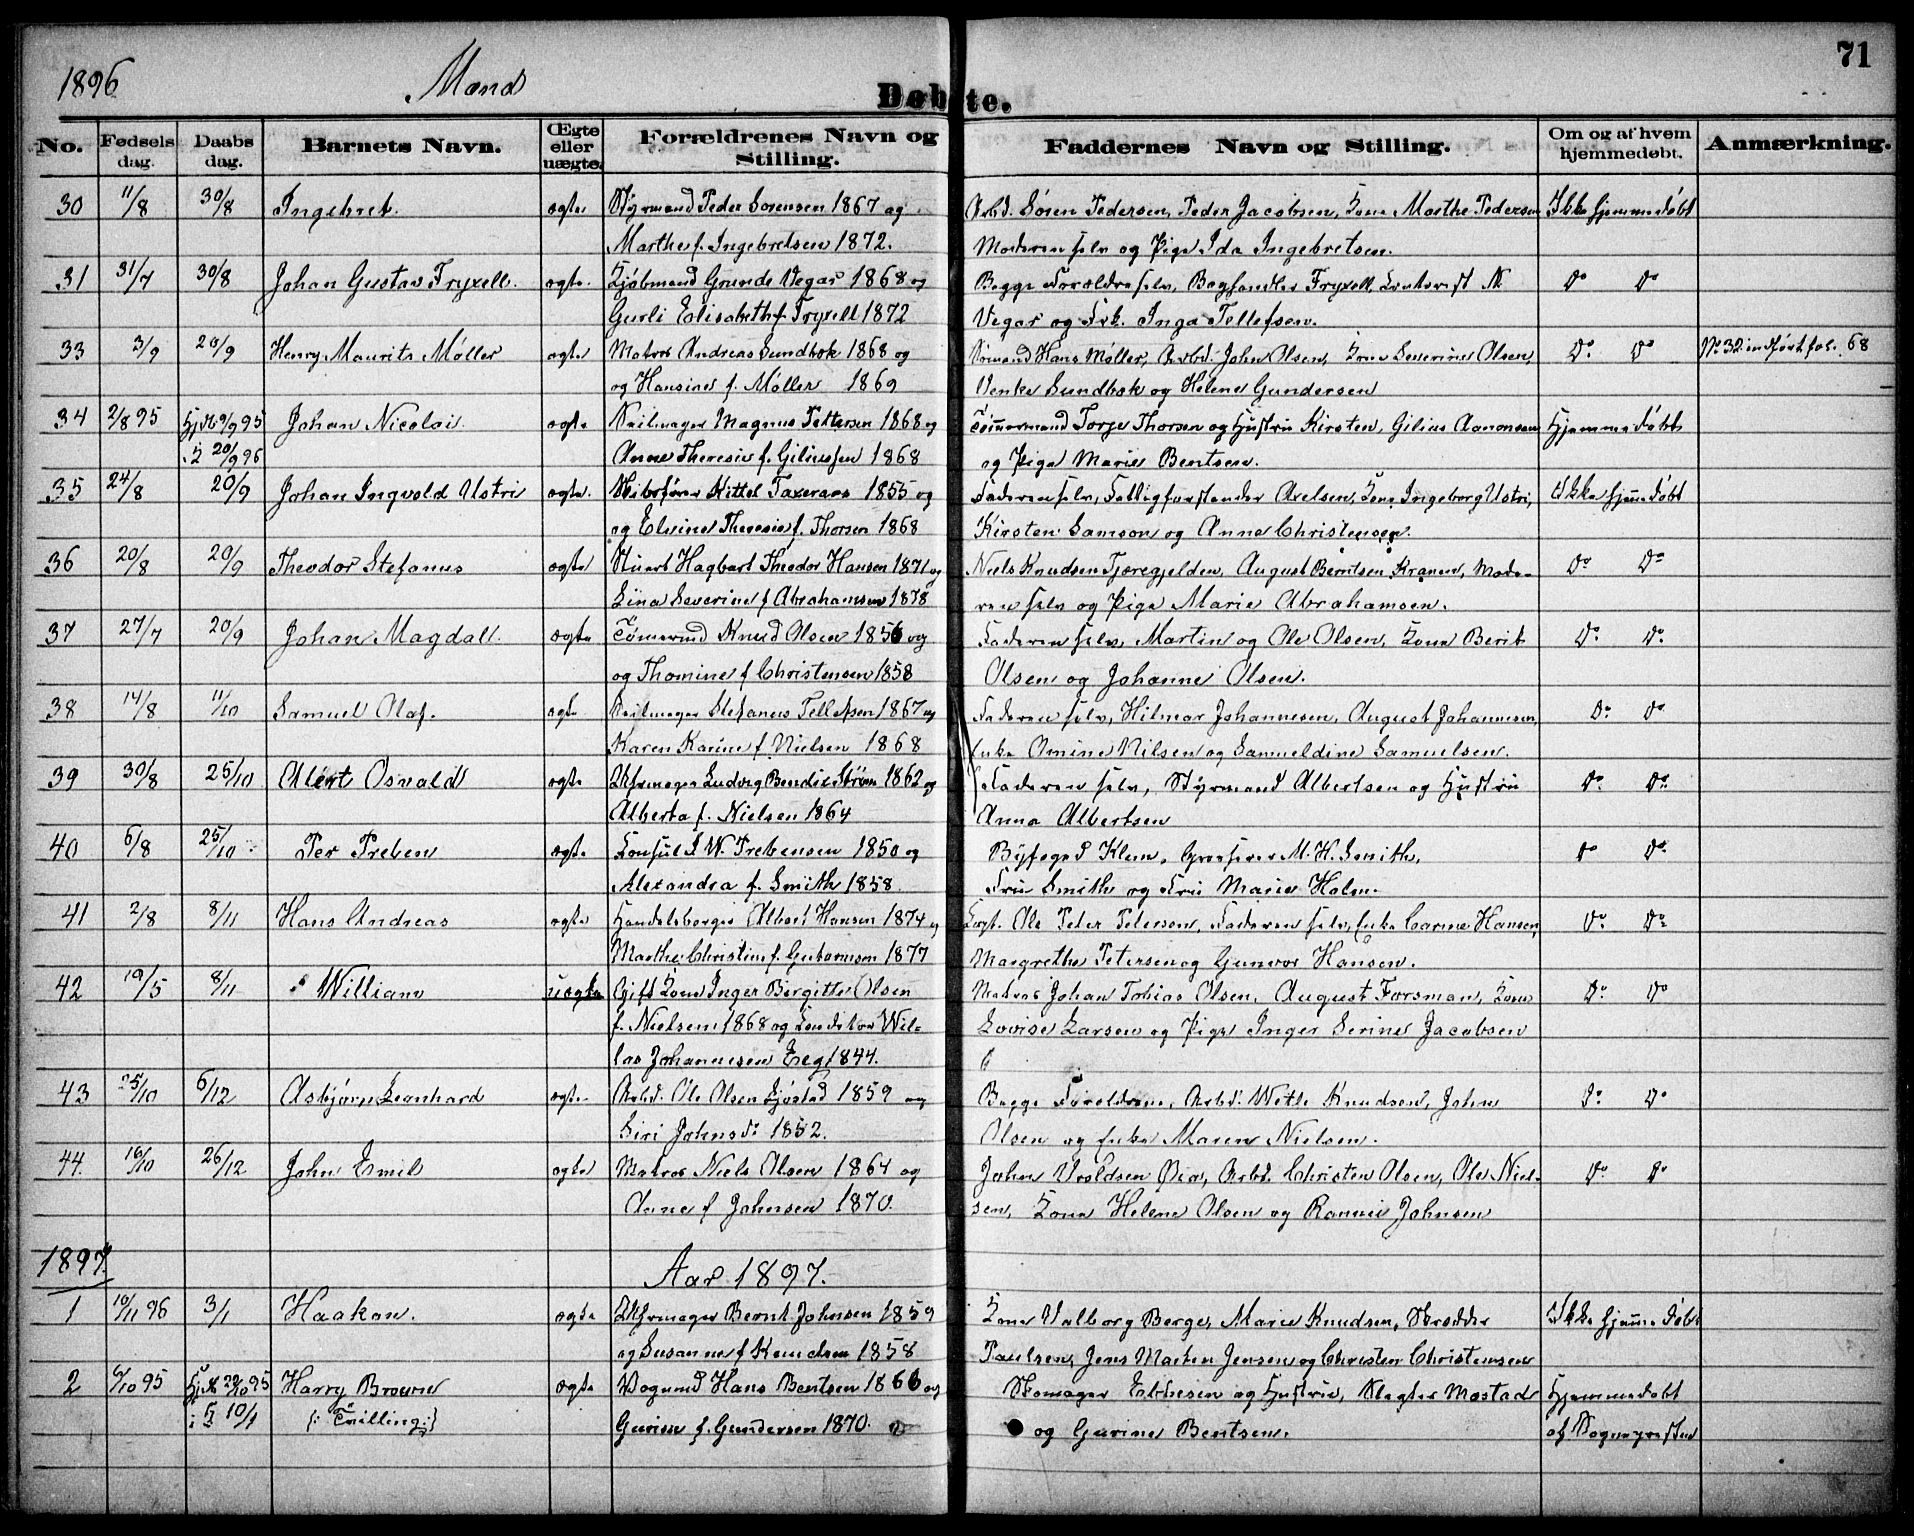 1896 Mænd Døbte. 71
No. Fødselsdag. Daabsdag. Barnets Navn. Ægte eller uægte. Forældrenes Navn og Stilling. Faddernes Navn og Stilling. Om og af hvem hjemmedøbt. Anmærkning.
30 11/8 30/8 Ingebret. ægte Styrmand Peder Sørensen 1867 og Arbd. Søren Pedersen, Peder Jacobsen, Kone Marthe Pedersen Ikke hjemmedøbt
Marthe f. Ingebretsen 1872. Moderen selv og Pige Ida Ingebretsen.
31 31/7 30/8 Johan Gustav Fryxell. ægte. Kjøbmand Grunde Vegar 1868 og Begge Forældre selv, Boghandler Fryxell, N. Do Do
Gurli Elisabeth f. Fryxell 1872 Vegar og Frk. Inga Tellefsen.
33 3/9 20/9 Henry Maurits Møller ægte Matros Andreas Sundbok 1868 og Hans Møller, Arbd. John Olsen, Kone Severine Olsen, Do Do No 32 indført fol. 68
og Hansine f. Møller 1869 Venke Sundbok og Helene Gundersen
34 2/8 95 Hjdt 9/9 95 Johan Nicolai. ægte Seilmager Magnus Pettersen 1868 og Tømmermand Torje Thorsen og Hustru Kirsten, Gilius Aanonsen Hjemmedøbt
i K 20/9 96 Anne Theresie f. Giliussen 1868 og Pige Marie Bentsen.
35 24/8 20/9 Johan Ingvold Ustri ægte. Skibsfører Kittel Taxeraas 1855 og Faderen selv, Fattigforstander Axelsen, Kone Ingeborg Ustri, Ikke hjemmedøbt
og Elvine Theresie f. Thorsen 1868 Kirsten Samson og Anna Christensen.
36 20/8 20/9 Theodor Stefanus ægte Stuert Hagbart Theodor Hansen 1871 og Niels Knudsen Tjæregjelden, August Berntsen Kranen, Mode- Do Do
Lina Severine f Abrahamsen 1878 ren selv og Pige Marie Abrahamsen.
37 27/7 20/9 Johan Magdal. ægte Tømmermd Knud Olsen 1856 og Faderen selv, Martin og Ole Olsen, Kone Berit Do Do
og Thomine f Christensen 1858 Olsen og Johanne Olsen.
38 14/8 11/10 Samuel Olaf. ægte Seilmager Stefanus Tellefsen 1867 og Faderen selv, Hilmar Johannesen, August Johannesen, Do Do
Karen Karine f. Nielsen 1868 Enke Amine Nilsen og Samueldine Samuelsen.
39 30/8 25/10 Albert Osvald ægte Uhrmager Ludvig Bendix Strøm 1862 og Faderen selv, Styrmand Albertsen og Hustru Do Do
Alberta f. Nielsen 1864 Anna Albertsen
40 6/8 25/10 Per Preben ægte Konsul W. Prebensen 1850 og Byfoged Klem, Grosserer M. H. Smith, Do Do
Alexandra f. Smith 1858. Fru Smith og Fru Marie Holm.
41 2/8 8/11 Hans Andreas ægte Handelsborger Albert Hansen 1874 og Kapt. Ole Peter Petersen, Faderen selv, Enke Carine Hansen, Do Do
Marthe Christine f. Guttormsen 1877 Margrethe Petersen og Gunvor Hansen.
42 19/5 8/11 William uægte Gift Kone Inger Birgitte Olsen Matros Johan Tobias Olsen, August Forsman, Kone Do Do
f. Nielsen 1868 og Wil- Lovise Larsen og Pige Inger Serine Jacobsen
las Johannesen Eeg 1844.
43 25/10 6/12 Asbjørn Leonhard ægte Arbd. Ole Olsen 1859 og Begge Forældrene, Arbd. Wetle Knudsen, John Do Do
Siri Johnsdr 1852. Olsen og Enke Maren Nielsen.
44. 16/10 26/12 John Emil ægte Matros Niels Olsen 1864 og John Uvoldsen Øien, Arbd. Christen Olsen, Ole Niel- Do Do
Anne f Johnsen 1870. sen, Kone Helene Olsen og Rannei Johnsen
1897. Aar 1897.
1 10/11 96 3/1 Haakon. ægte Uhrmager Bernt Johnsen 1859 Kone Valborg Berge, Marie Knudsen, Skrædder Ikke hjemmedøbt
og Susanne f Knudsen 1858 Paulsen, Jens Morten Jensen og Christen Christensen
2 6/10 95 Hjdt 29/10 95 Harry Broune ægte Vognmd Hans Bentsen 1866 og Skomager og Hustru, Slagter Mostad Hjemmedøbt
i K 10/1 {: Tvilling :} Gurine f. Gundersen 1870. og Gurine Bentsen. af